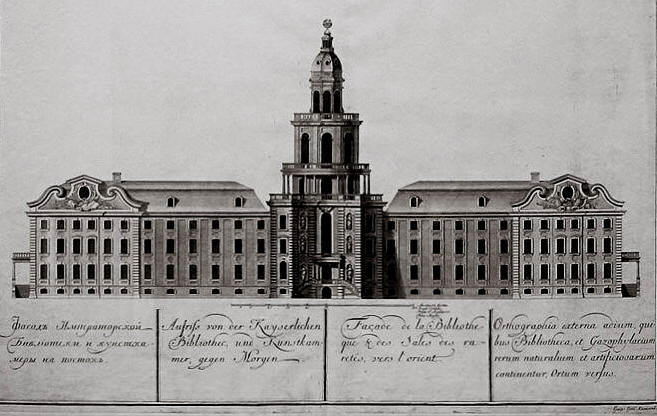 Фасадъ Императорской
Библиотеки и кунстка-
меры на востокъ.
Aufriss von der Kayserlichen
Bibliothec, und Kunstkam-
mer, gegen Morgen
Façade de la Bibliothe-
que & des Sales des ra-
retés, vers l'orient
Orthographia externa aedium, qui-
bus Bibliotheca, et Gazophylacium
rerum naturalium et artificiosarum
continentur, Ortum versus.